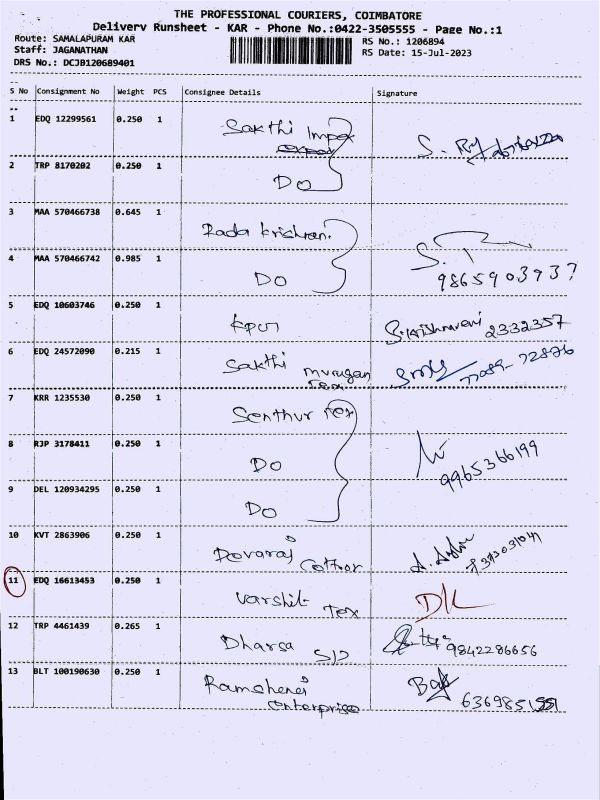 THE PROFESSIONAL COURIERS, COIMBATORE
Delivery Runsheet - KAR - Phone No.:0422-3505555 - Page No.:1
Route: SAMALAPURAM KAR
RS No.: 1206894
Staff: JAGANATHAN
RS Date: 15-Jul-2023
DRS No.: DCJB120689401
S No Consignment No Weight PCS Consignee Details Signature
1 EDQ 12299561 0.250 1 Sakthi Impex
2 TRP 8170202 0.250 1 DO
3 MAA 570466738 0.645 1 Rada krishnan.
4 MAA 570466742 0.985 1 DO
9865903937
5 EDQ 10603746 0.250 1 kpun S. krishnaveni 2332357
6 EDQ 24572090 0.215 1 Sakthi murugan
Tea
7 KRR 1235530 0.250 1 Senthur Tex
8 RJP 3178411 0.250 1 DO
9965366199
9 DEL 120934295 0.250 1 DO
10 KVT 2863906 0.250 1 Devaraj Cotton
11 EDQ 16613453 0.250 1 Varshit Tex
12 TRP 4461439 0.265 1 Dharsa
9842286656
13 BLT 100190630 0.250 1
enterprise